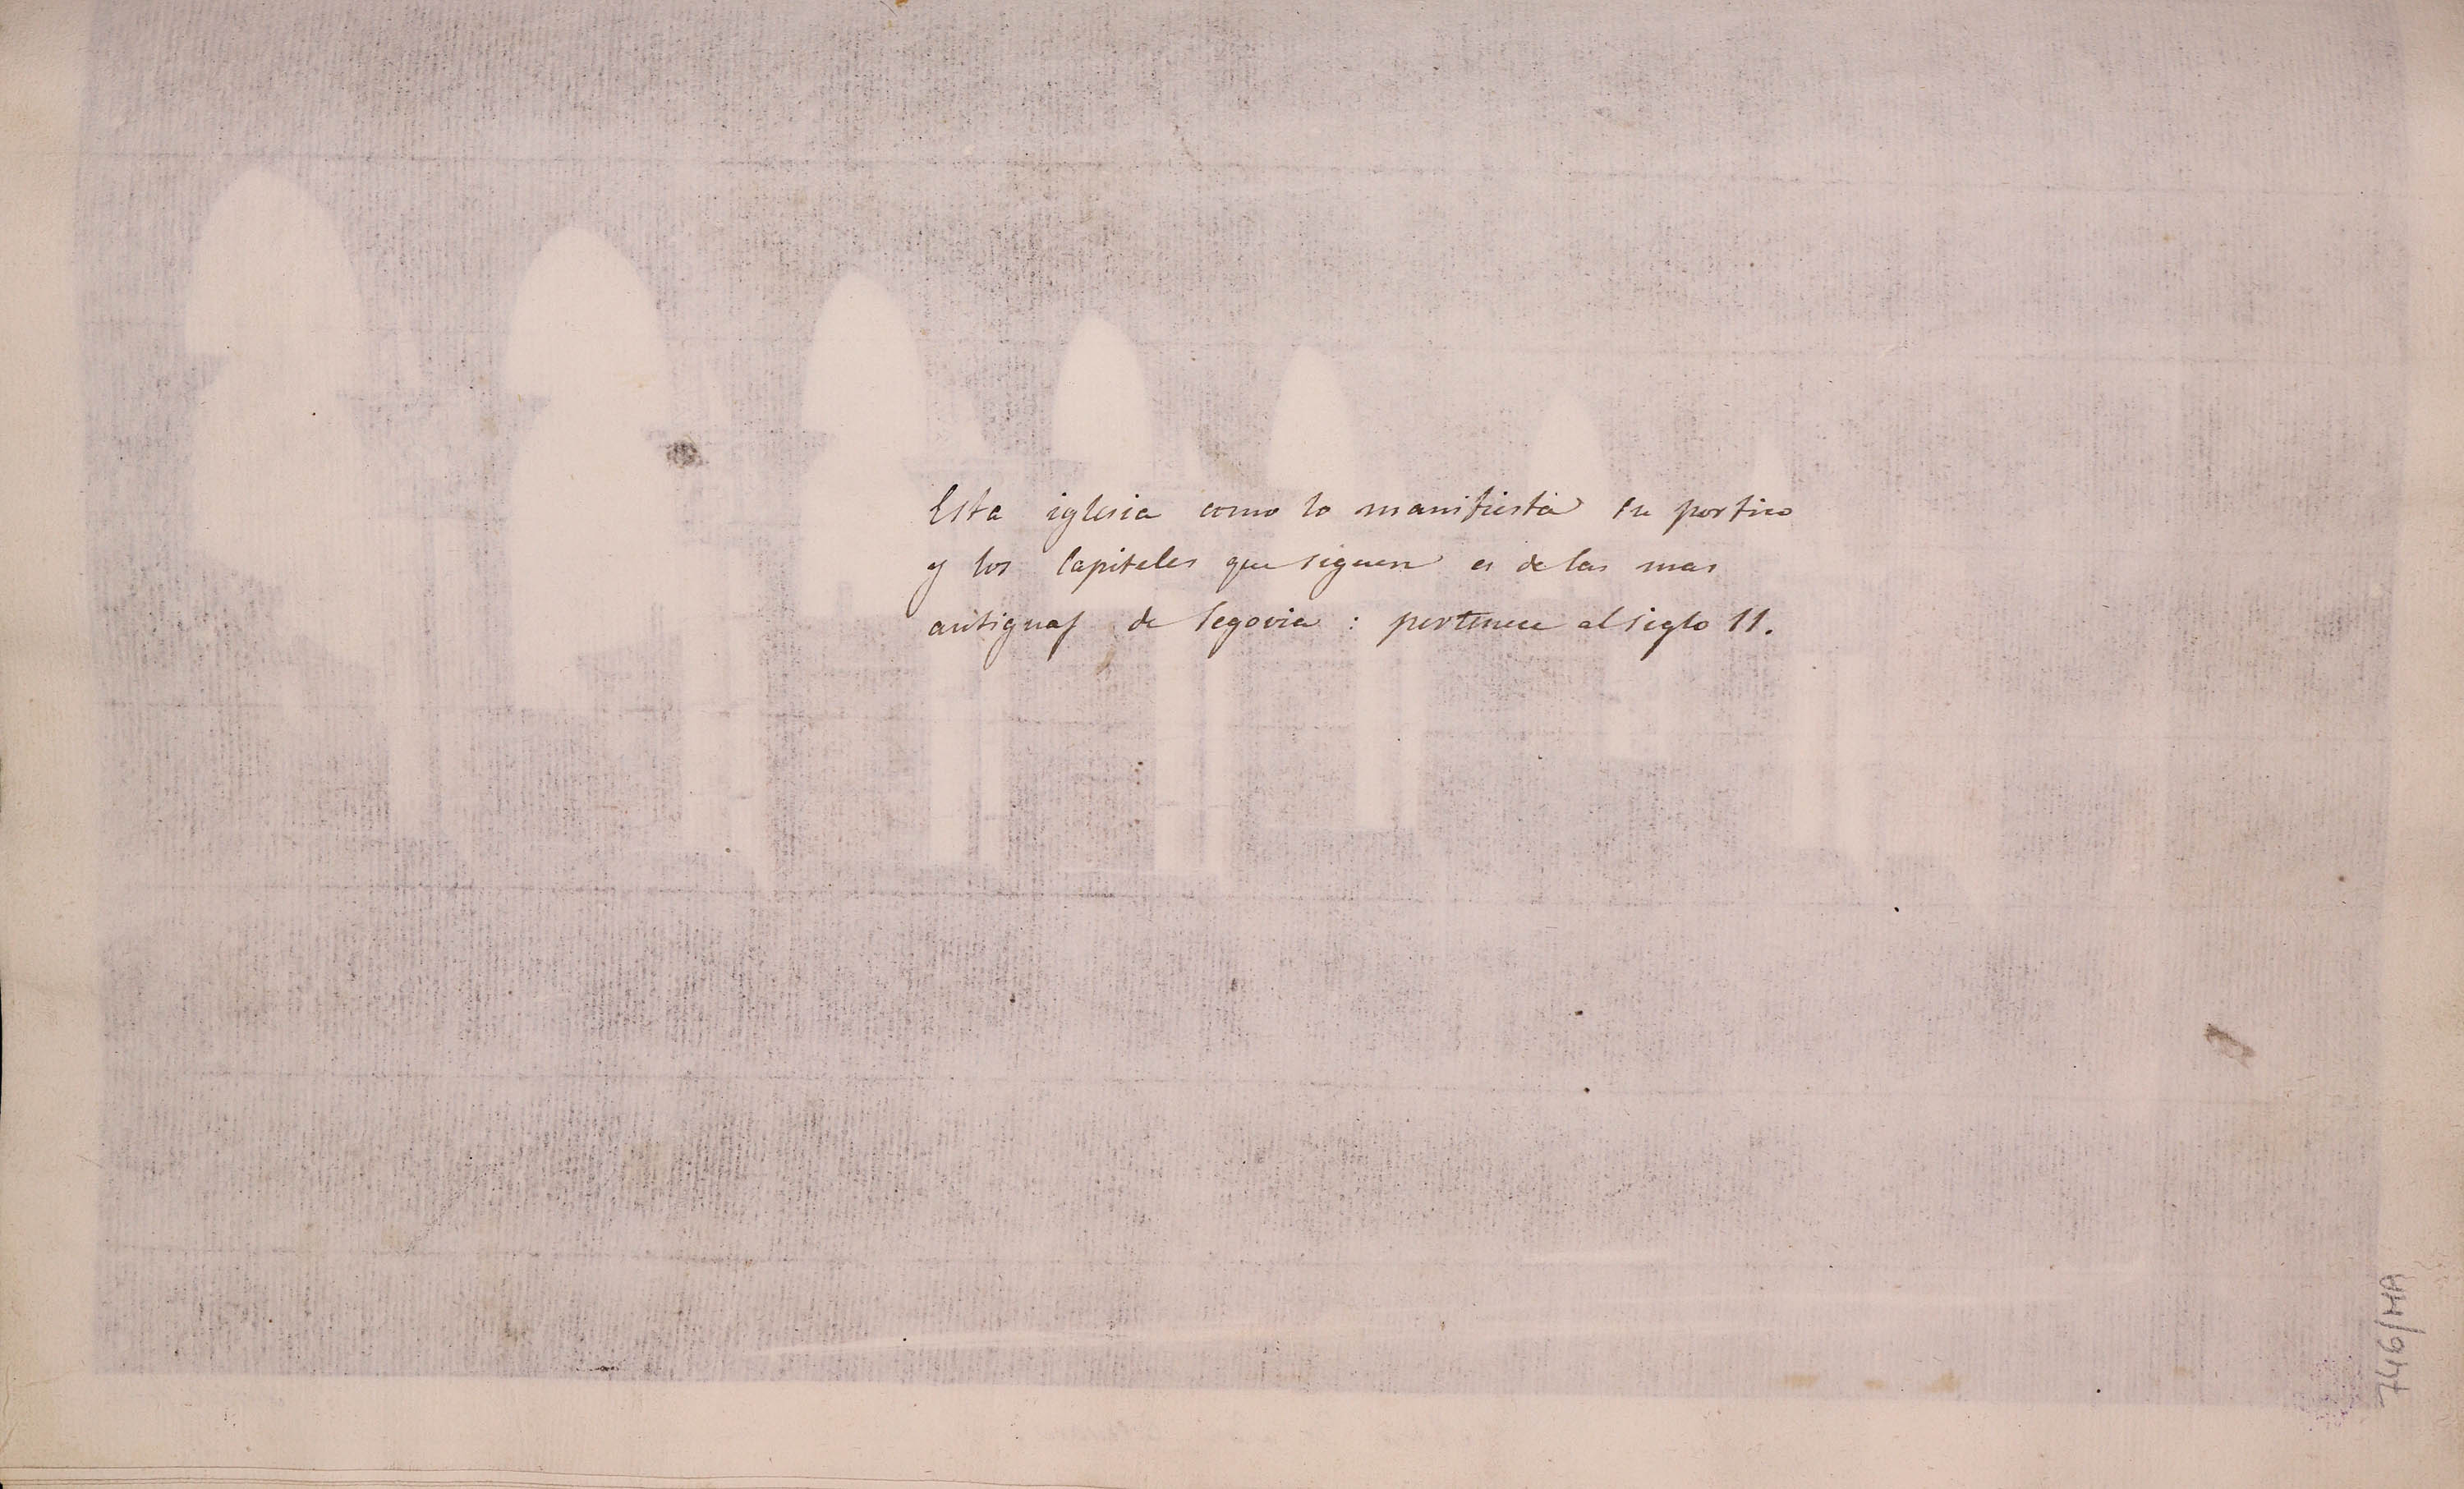 Esta iglesia como lo manifiesta su portico
y los Capiteles que siguen es de las mas
antiguas de Segovia : pertenece al siglo 11.
746/MA